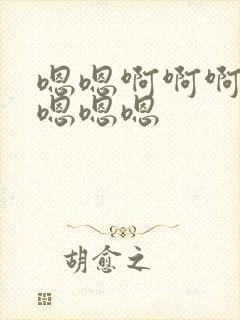 嗯嗯啊啊啊
嗯嗯嗯
胡愈之